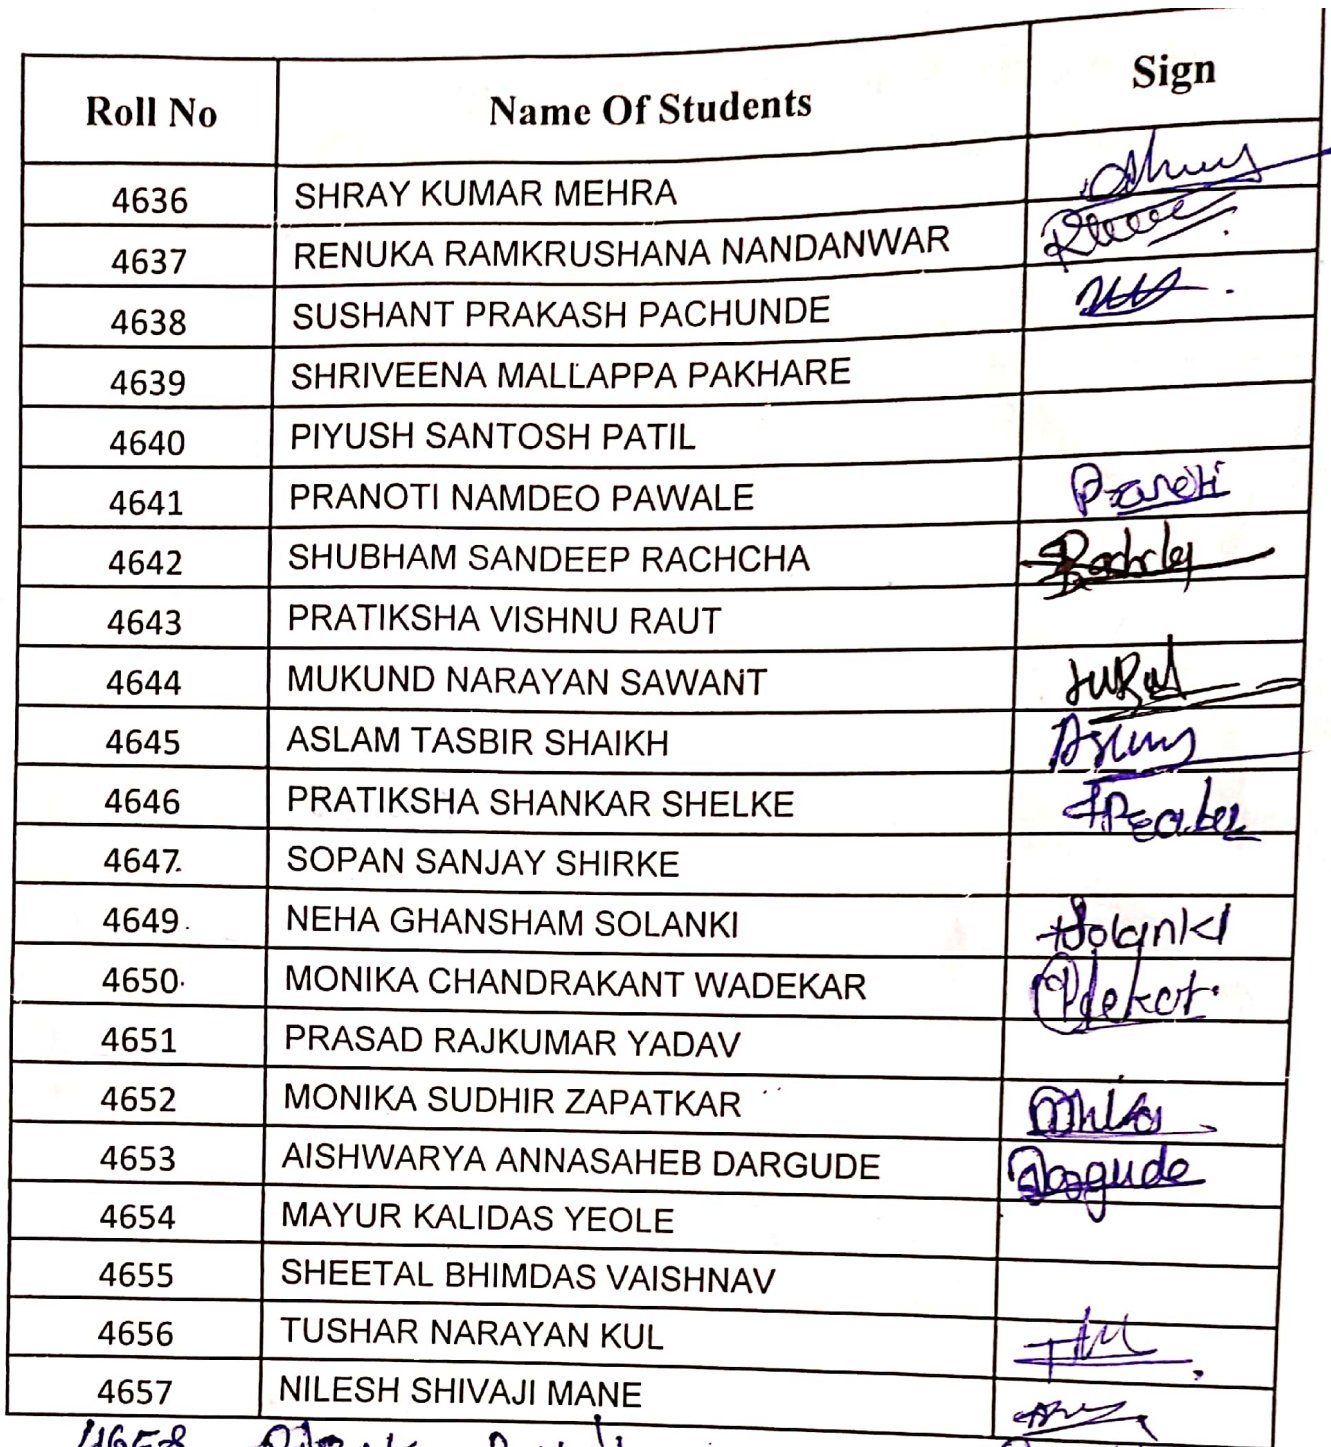 Roll No Name Of Students Sign
4636 SHRAY KUMAR MEHRA
4637 RENUKA RAMKRUSHANA NANDANWAR
4638 SUSHANT PRAKASH PACHUNDE
4639 SHRIVEENA MALLAPPA PAKHARE
4640 PIYUSH SANTOSH PATIL
4641 PRANOTI NAMDEO PAWALE Pranoti
4642 SHUBHAM SANDEEP RACHCHA
4643 PRATIKSHA VISHNU RAUT
4644 MUKUND NARAYAN SAWANT
4645 ASLAM TASBIR SHAIKH
4646 PRATIKSHA SHANKAR SHELKE
4647 SOPAN SANJAY SHIRKE
4649 NEHA GHANSHAM SOLANKI Solanki
4650 MONIKA CHANDRAKANT WADEKAR
4651 PRASAD RAJKUMAR YADAV
4652 MONIKA SUDHIR ZAPATKAR
4653 AISHWARYA ANNASAHEB DARGUDE Dargude
4654 MAYUR KALIDAS YEOLE
4655 SHEETAL BHIMDAS VAISHNAV
4656 TUSHAR NARAYAN KUL
4657 NILESH SHIVAJI MANE
4658